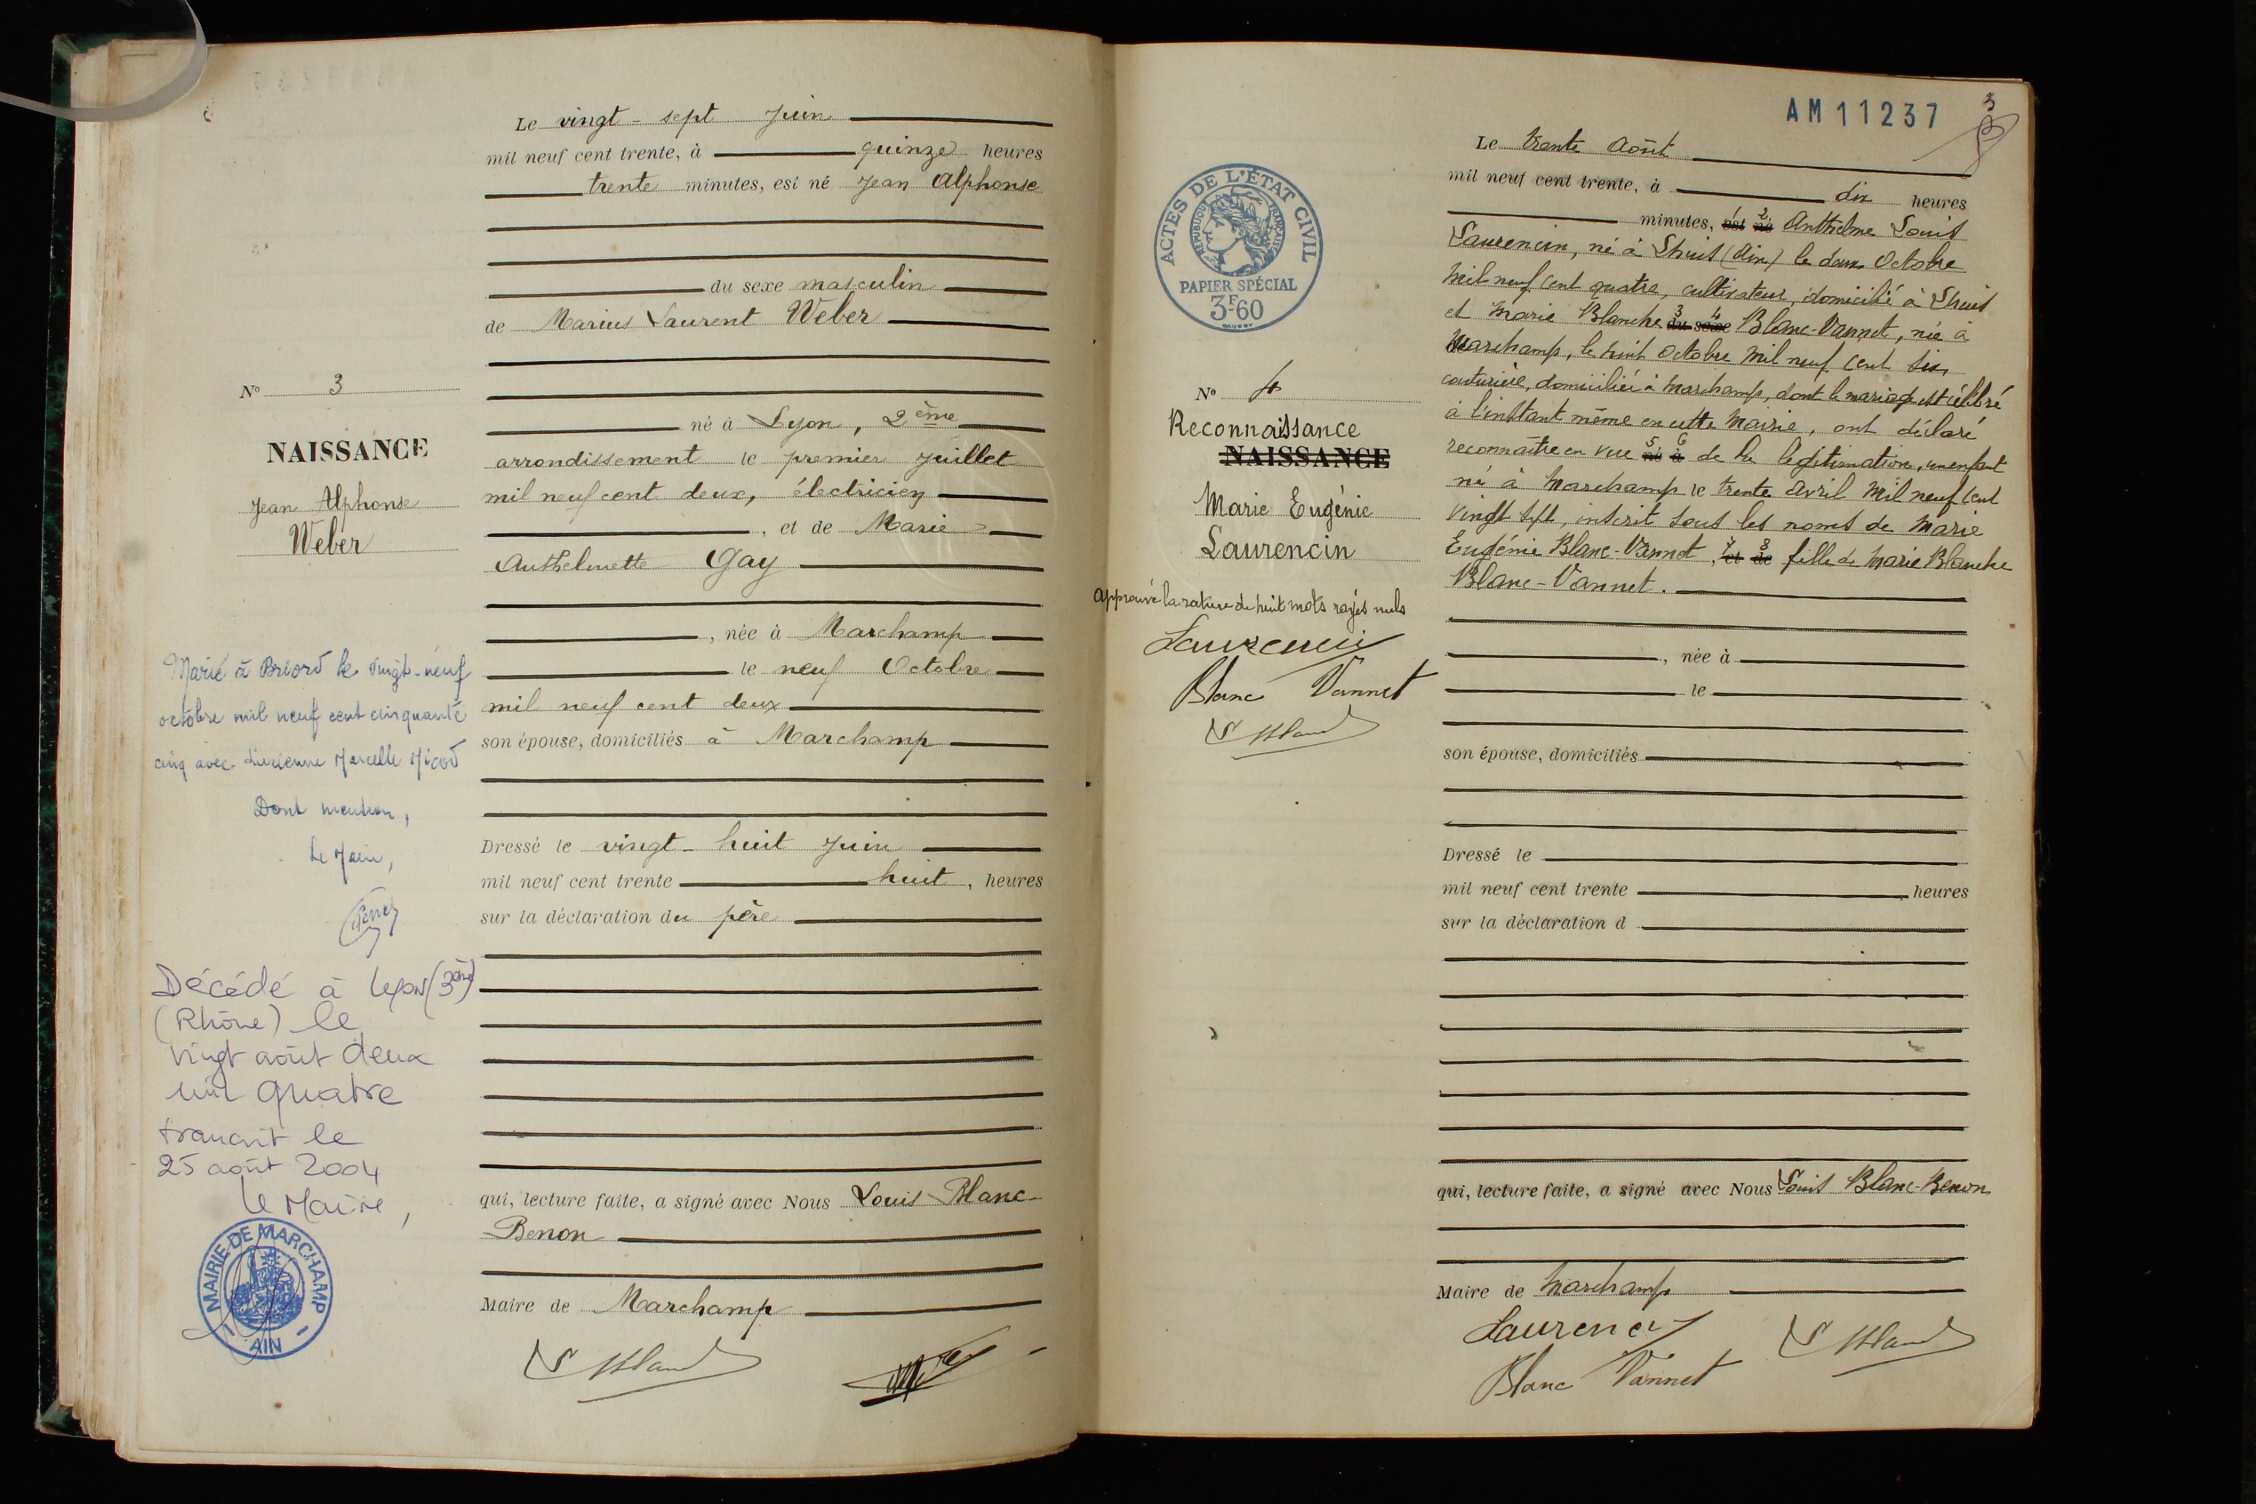 Le vingt-sept Juin
mil neuf cent trente, à quinze heures
trente minutes, est né Jean Alphonse
du sexe masculin
de Marius Laurent Weber
né à Lyon, 2ème
arrondissement le premier Juillet
mil neuf cent deux, électricien
, et de Marie
Anthelmette Gay
, née à Marchamp
le neuf Octobre
mil neuf cent deux
son épouse, domiciliés à Marchamp
Dressé le vingt-huit Juin
mil neuf cent trente huit, heures
sur la déclaration du père
qui, lecture faite, a signé avec Nous Louis Blanc-
Benon
Maire de Marchamp
No 3
NAISSANCE
Jean Alphonse
Weber
Marié à Briord le vingt-neuf
octobre mil neuf cent cinquante
cinq avec Lucienne Marcelle Micod
Dont mention,
Le Maire,
Décédé à Lyon (3ème)
(Rhône) le
vingt août deux
mil quatre
transcrit le
25 août 2004
Le Maire,
MAIRIE DE MARCHAMP
AIN
AM11237
3
ACTES DE L'ÉTAT CIVIL
RÉPUBLIQUE FRANÇAISE
PAPIER SPÉCIAL
3F60
No 4
Reconnaissance
NAISSANCE
Marie Eugénie
Laurencin
Approuvé la rature de huit mots rayés nuls
Laurencin
Blanc Vannet
L Blanc
Le trente Août
mil neuf cent trente, à dix heures
minutes, 1 est 2 né Anthelme Louis
Laurencin, né à Lhuis (Ain) le deux Octobre
mil neuf cent quatre, cultivateur, domicilié à Lhuis
et Marie Blanche 3 du 4 sexe Blanc-Vannet, née à
Marchamp, le huit Octobre mil neuf cent six,
couturière, domiciliée à Marchamp, dont le mariage est célébré
à l'instant même en cette Mairie, ont déclaré
reconnaître en vue 5 né 6 à de la légitimation, un enfant
né à Marchamp le trente Avril mil neuf cent
vingt sept, inscrit sous les noms de Marie
Eugénie Blanc-Vannet, 7 et 8 de fille de Marie Blanche
Blanc-Vannet.
, née à
le
son épouse, domiciliés
Dressé le
mil neuf cent trente heures
sur la déclaration d
qui, lecture faite, a signé avec Nous Louis Blanc-Benon
Maire de Marchamp
Laurencin
L Blanc
Blanc Vannet